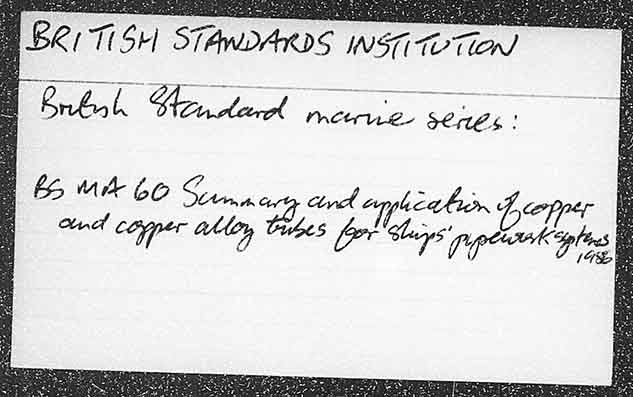 BRITISH STANDARDS INSTITUTION
British Standard marine series:
BS MA 60 Summary and application of copper
and copper alloy tubes for ships' pipework systems
1986